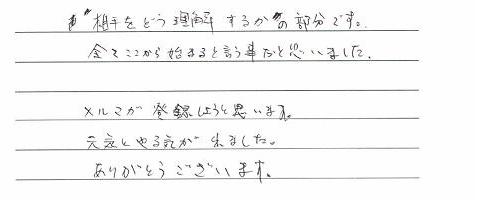 "相手をどう理解するか"の部分です。
全てここから始まると言う事だと思いました。
メルマガ登録しようと思います。
元気とやる気が出ました。
ありがとうございます。